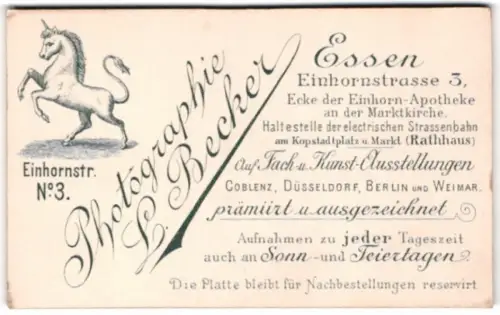 Einhornstr.
No. 3.
Photographie
L. Becker
Essen
Einhornstrasse 3,
Ecke der Einhorn-Apotheke
an der Marktkirche.
Haltestelle der electrischen Strassenbahn
am Kopstadtplatz u. Markt (Rathhaus)
Auf Fach- u. Kunst-Ausstellungen
COBLENZ, DÜSSELDORF, BERLIN UND WEIMAR.
prämiirt u. ausgezeichnet
Aufnahmen zu jeder Tageszeit
auch an Sonn- und Feiertagen
Die Platte bleibt für Nachbestellungen reservirt